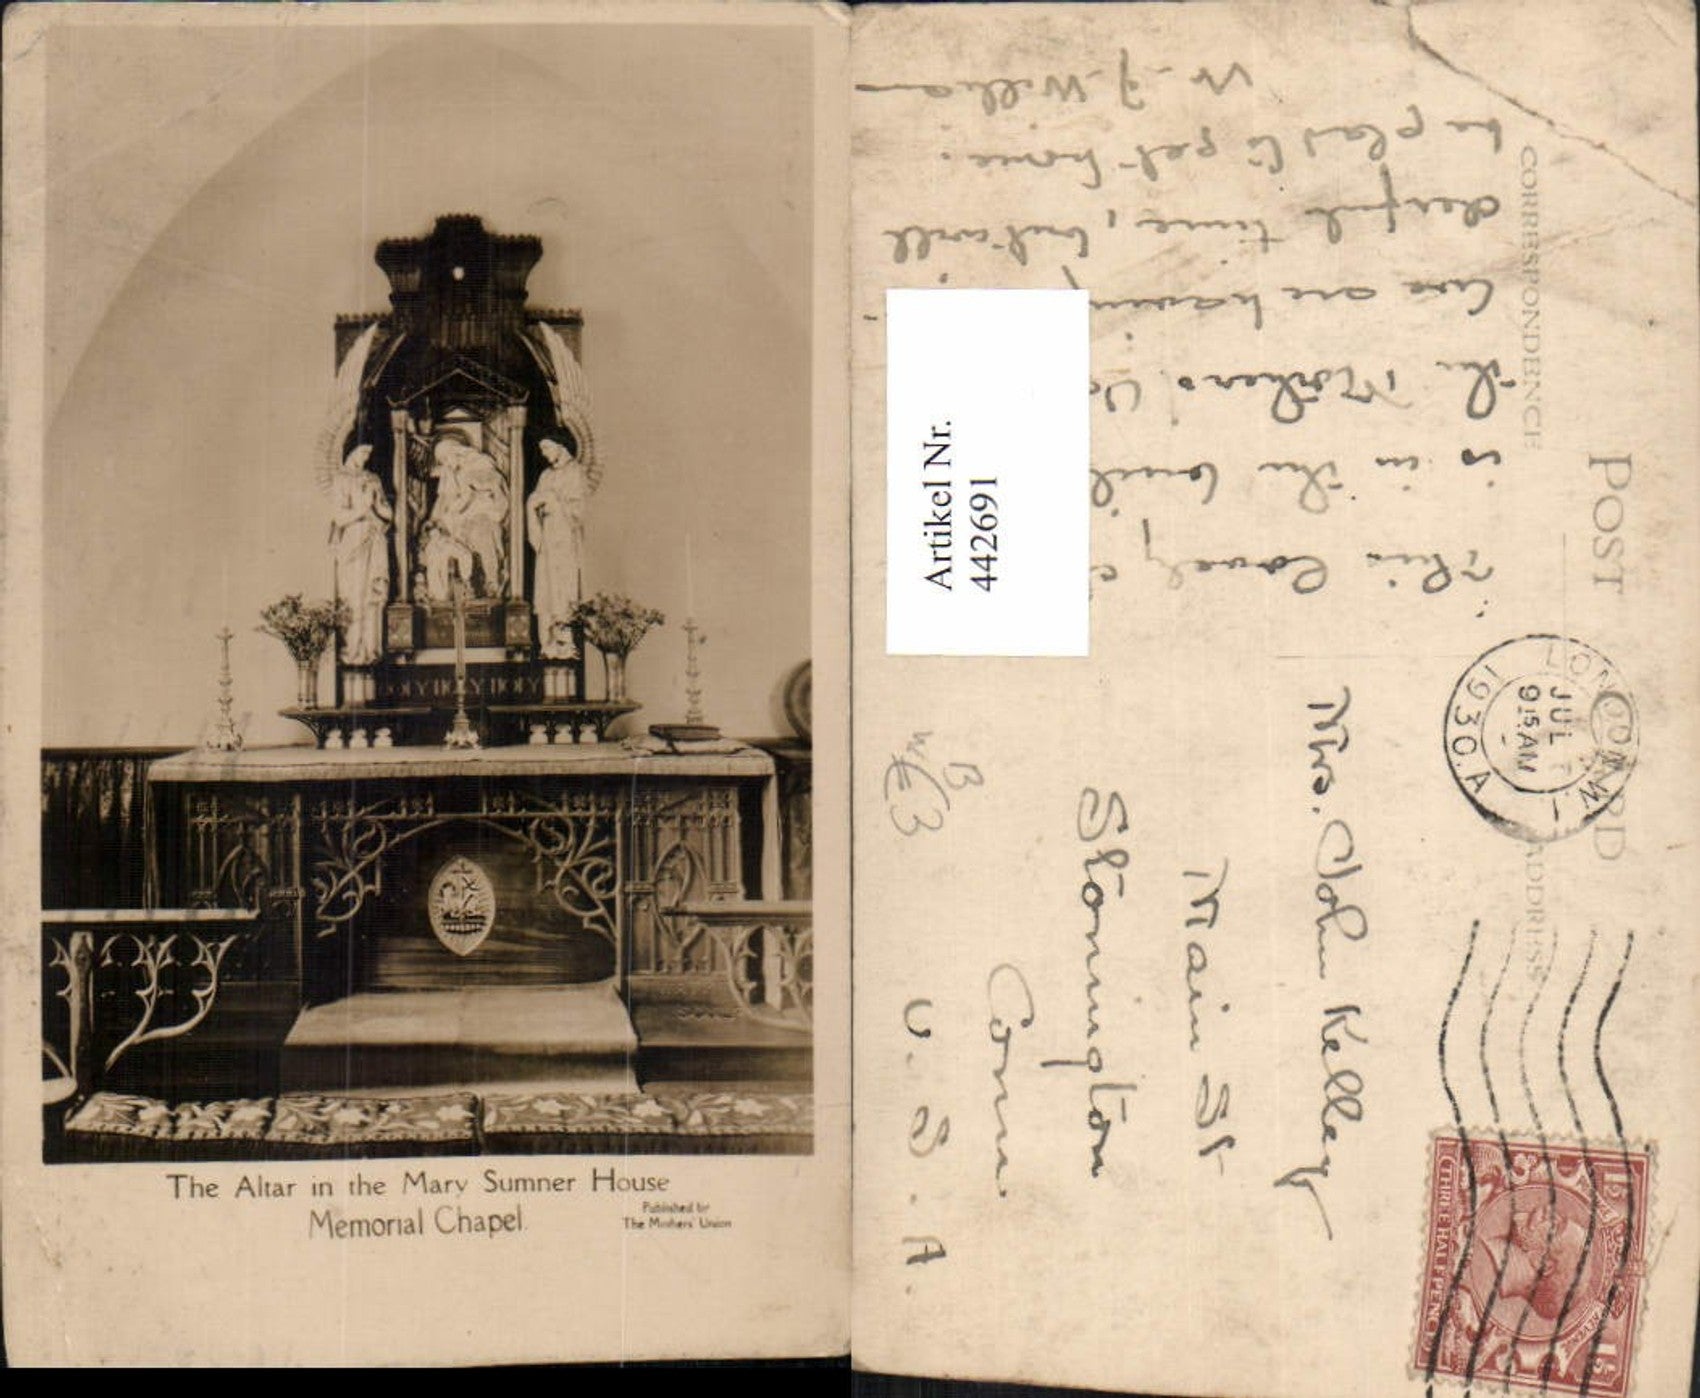 HOLY HOLY HOLY
The Altar in the Mary Sumner House
Memorial Chapel.
Published by
The Mothers' Union
POST CARD
CORRESPONDENCE
ADDRESS
This lovely
is in the
the Mothers
We are having
derful time, but will
be glad to get home.
W. J. William
Artikel Nr.
442691
LONDON. W.
JUL
9 15 AM
1930. A
Mrs. John Kelley
Main St
Stonington
Conn.
U. S. A.
THREE HALFPENCE